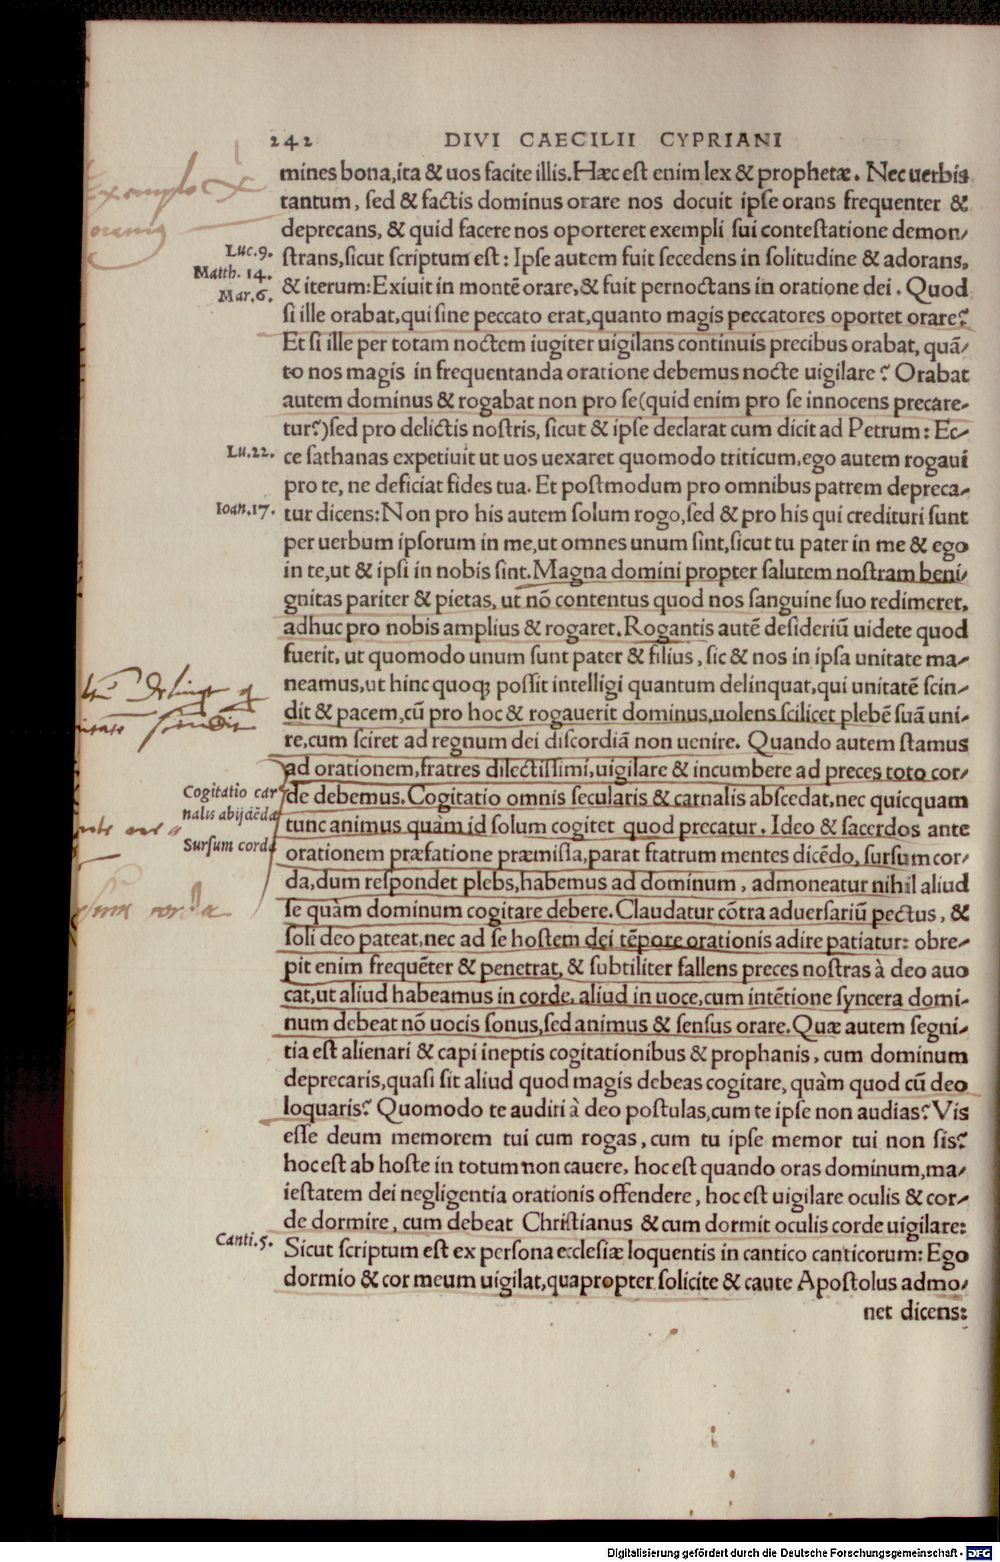 242 DIVI CAECILII CYPRIANI
mines bona,ita & uos facite illis.Hæc est enim lex & prophetæ. Nec uerbis
tantum, sed & factis dominus orare nos docuit ipse orans frequenter &
deprecans, & quid facere nos oporteret exempli sui contestatione demon-
Luc.9.
strans,sicut scriptum est: Ipse autem fuit secedens in solitudine & adorans,
Matth. 14.
Mar.6.
& iterum:Exiuit in montē orare,& fuit pernoctans in oratione dei. Quod
si ille orabat,qui sine peccato erat,quanto magis peccatores oportet orare?
Et si ille per totam noctem iugiter uigilans continuis precibus orabat, quā-
to nos magis in frequentanda oratione debemus nocte uigilare? Orabat
autem dominus & rogabat non pro se(quid enim pro se innocens precare-
tur?)sed pro delictis nostris, sicut & ipse declarat cum dicit ad Petrum: Ec-
Lu.22.
ce sathanas expetiuit ut uos uexaret quomodo triticum,ego autem rogaui
pro te, ne deficiat fides tua. Et postmodum pro omnibus patrem depreca-
Ioan.17.
tur dicens:Non pro his autem solum rogo,sed & pro his qui credituri sunt
per uerbum ipsorum in me,ut omnes unum sint,sicut tu pater in me & ego
in te,ut & ipsi in nobis sint.Magna domini propter salutem nostram beni-
gnitas pariter & pietas, ut nō contentus quod nos sanguine suo redimeret,
adhuc pro nobis amplius & rogaret.Rogantis autē desideriū uidete quod
fuerit, ut quomodo unum sunt pater & filius, sic & nos in ipsa unitate ma-
neamus,ut hinc quoq; possit intelligi quantum delinquat,qui unitatē scin-
dit & pacem,cū pro hoc & rogauerit dominus,uolens scilicet plebē suā uni-
re,cum sciret ad regnum dei discordiā non uenire. Quando autem stamus
ad orationem,fratres dilectissimi,uigilare & incumbere ad preces toto cor-
Cogitatio car
nalis abijcēda
de debemus.Cogitatio omnis secularis & carnalis abscedat,nec quicquam
tunc animus quàm id solum cogitet quod precatur. Ideo & sacerdos ante
Sursum corda
orationem præfatione præmissa,parat fratrum mentes dicēdo, sursum cor-
da,dum respondet plebs,habemus ad dominum, admoneatur nihil aliud
sursum corda
se quàm dominum cogitare debere.Claudatur cōtra aduersariū pectus, &
soli deo pateat,nec ad se hostem dei tēpore orationis adire patiatur: obre-
pit enim frequēter & penetrat, & subtiliter fallens preces nostras à deo auo
cat,ut aliud habeamus in corde, aliud in uoce,cum intētione syncera domi-
num debeat nō uocis sonus,sed animus & sensus orare.Quæ autem segni-
tia est alienari & capi ineptis cogitationibus & prophanis, cum dominum
deprecaris,quasi sit aliud quod magis debeas cogitare, quàm quod cū deo
loquaris? Quomodo te audiri à deo postulas,cum te ipse non audias? Vis
esse deum memorem tui cum rogas, cum tu ipse memor tui non sis?
hoc est ab hoste in totum non cauere, hoc est quando oras dominum,ma-
iestatem dei negligentia orationis offendere, hoc est uigilare oculis & cor-
de dormire, cum debeat Christianus & cum dormit oculis corde uigilare:
Canti.5.
Sicut scriptum est ex persona ecclesiæ loquentis in cantico canticorum: Ego
dormio & cor meum uigilat,quapropter solicite & caute Apostolus admo-
net dicens:
Digitalisierung gefördert durch die Deutsche Forschungsgemeinschaft - DFG